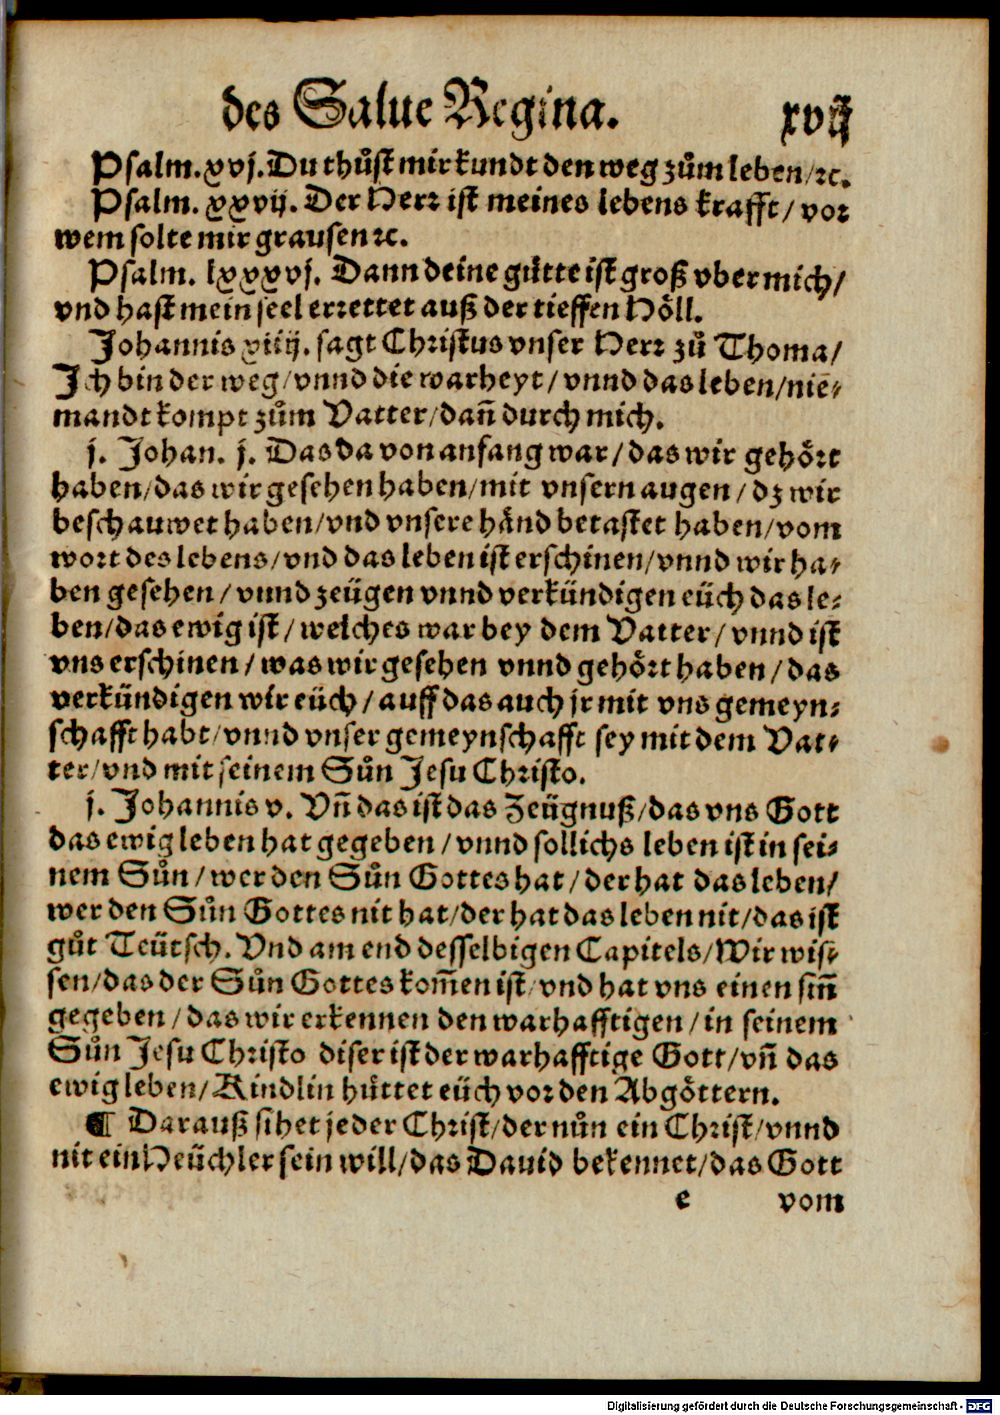 des Salue Regina. xvij
Psalm. xvj. Du thůst mir kundt den weg zům leben/ ⁊c.
Psalm. xxvij. Der Herr ist meines lebens krafft/ vor
wem solte mir grausen ⁊c.
Psalm. lxxxvj. Dann deine gütte ist groß vber mich/
vnd hast mein seel errettet auß der tieffen Höll.
Johannis xiiij. sagt Christus vnser Herr zů Thoma/
Ich bin der weg/ vnnd die warheyt/ vnnd das leben/ nie⸗
mandt kompt zům Vatter/ dañ durch mich.
j. Johan. j. Das da von anfang war/ das wir gehört
haben/ das wir gesehen haben/ mit vnsern augen/ dz wir
beschauwet haben/ vnd vnsere händ betastet haben/ vom
wort des lebens/ vnd das leben ist erschinen/ vnnd wir ha⸗
ben gesehen/ vnnd zeügen vnnd verkündigen eüch das le⸗
ben/ das ewig ist/ welches war bey dem Vatter/ vnnd ist
vns erschinen/ was wir gesehen vnnd gehört haben/ das
verkündigen wir eüch/ auff das auch jr mit vns gemeyn⸗
schafft habt/ vnnd vnser gemeynschafft sey mit dem Vat⸗
ter/ vnd mit seinem Sůn Jesu Christo.
j. Johannis v. Vñ das ist das Zeügnuß/ das vns Gott
das ewig leben hat gegeben/ vnnd sollichs leben ist in sei⸗
nem Sůn/ wer den Sůn Gottes hat/ der hat das leben/
wer den Sůn Gottes nit hat/ der hat das leben nit/ das ist
gůt Teütsch. Vnd am end desselbigen Capitels/ Wir wis⸗
sen/ das der Sůn Gottes kom̃en ist/ vnd hat vns einen siñ
gegeben/ das wir erkennen den warhafftigen/ in seinem
Sůn Jesu Christo diser ist der warhafftige Gott/ vñ das
ewig leben/ Kindlin hüttet eüch vor den Abgöttern.
¶ Darauß sihet jeder Christ/ der nůn ein Christ/ vnnd
nit ein Heüchler sein will/ das Dauid bekennet/ das Gott
e vom
Digitalisierung gefördert durch die Deutsche Forschungsgemeinschaft - DFG